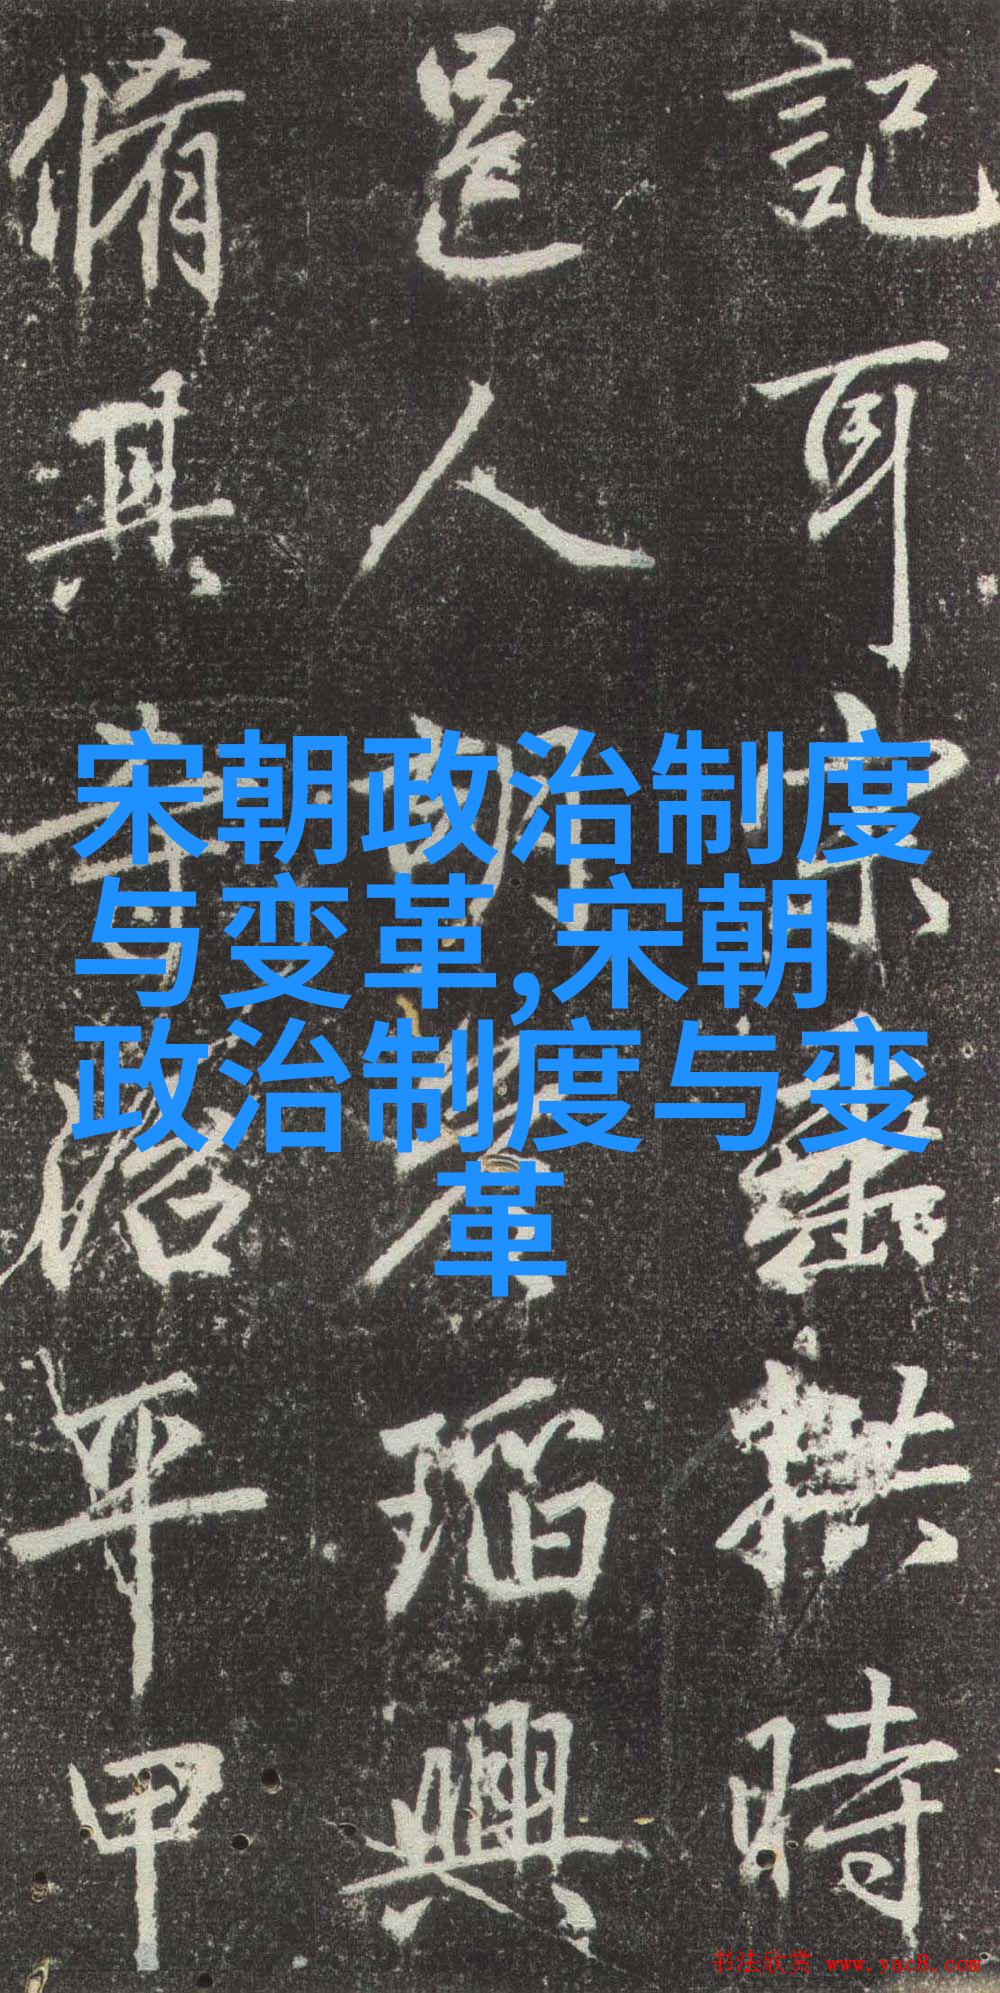 記耳宋垂拱時
邑人瑫興
脩其寺治平甲
宋朝政治制度
与变革,宋朝
政治制度与变
革
书法欣赏 www.yac8.com